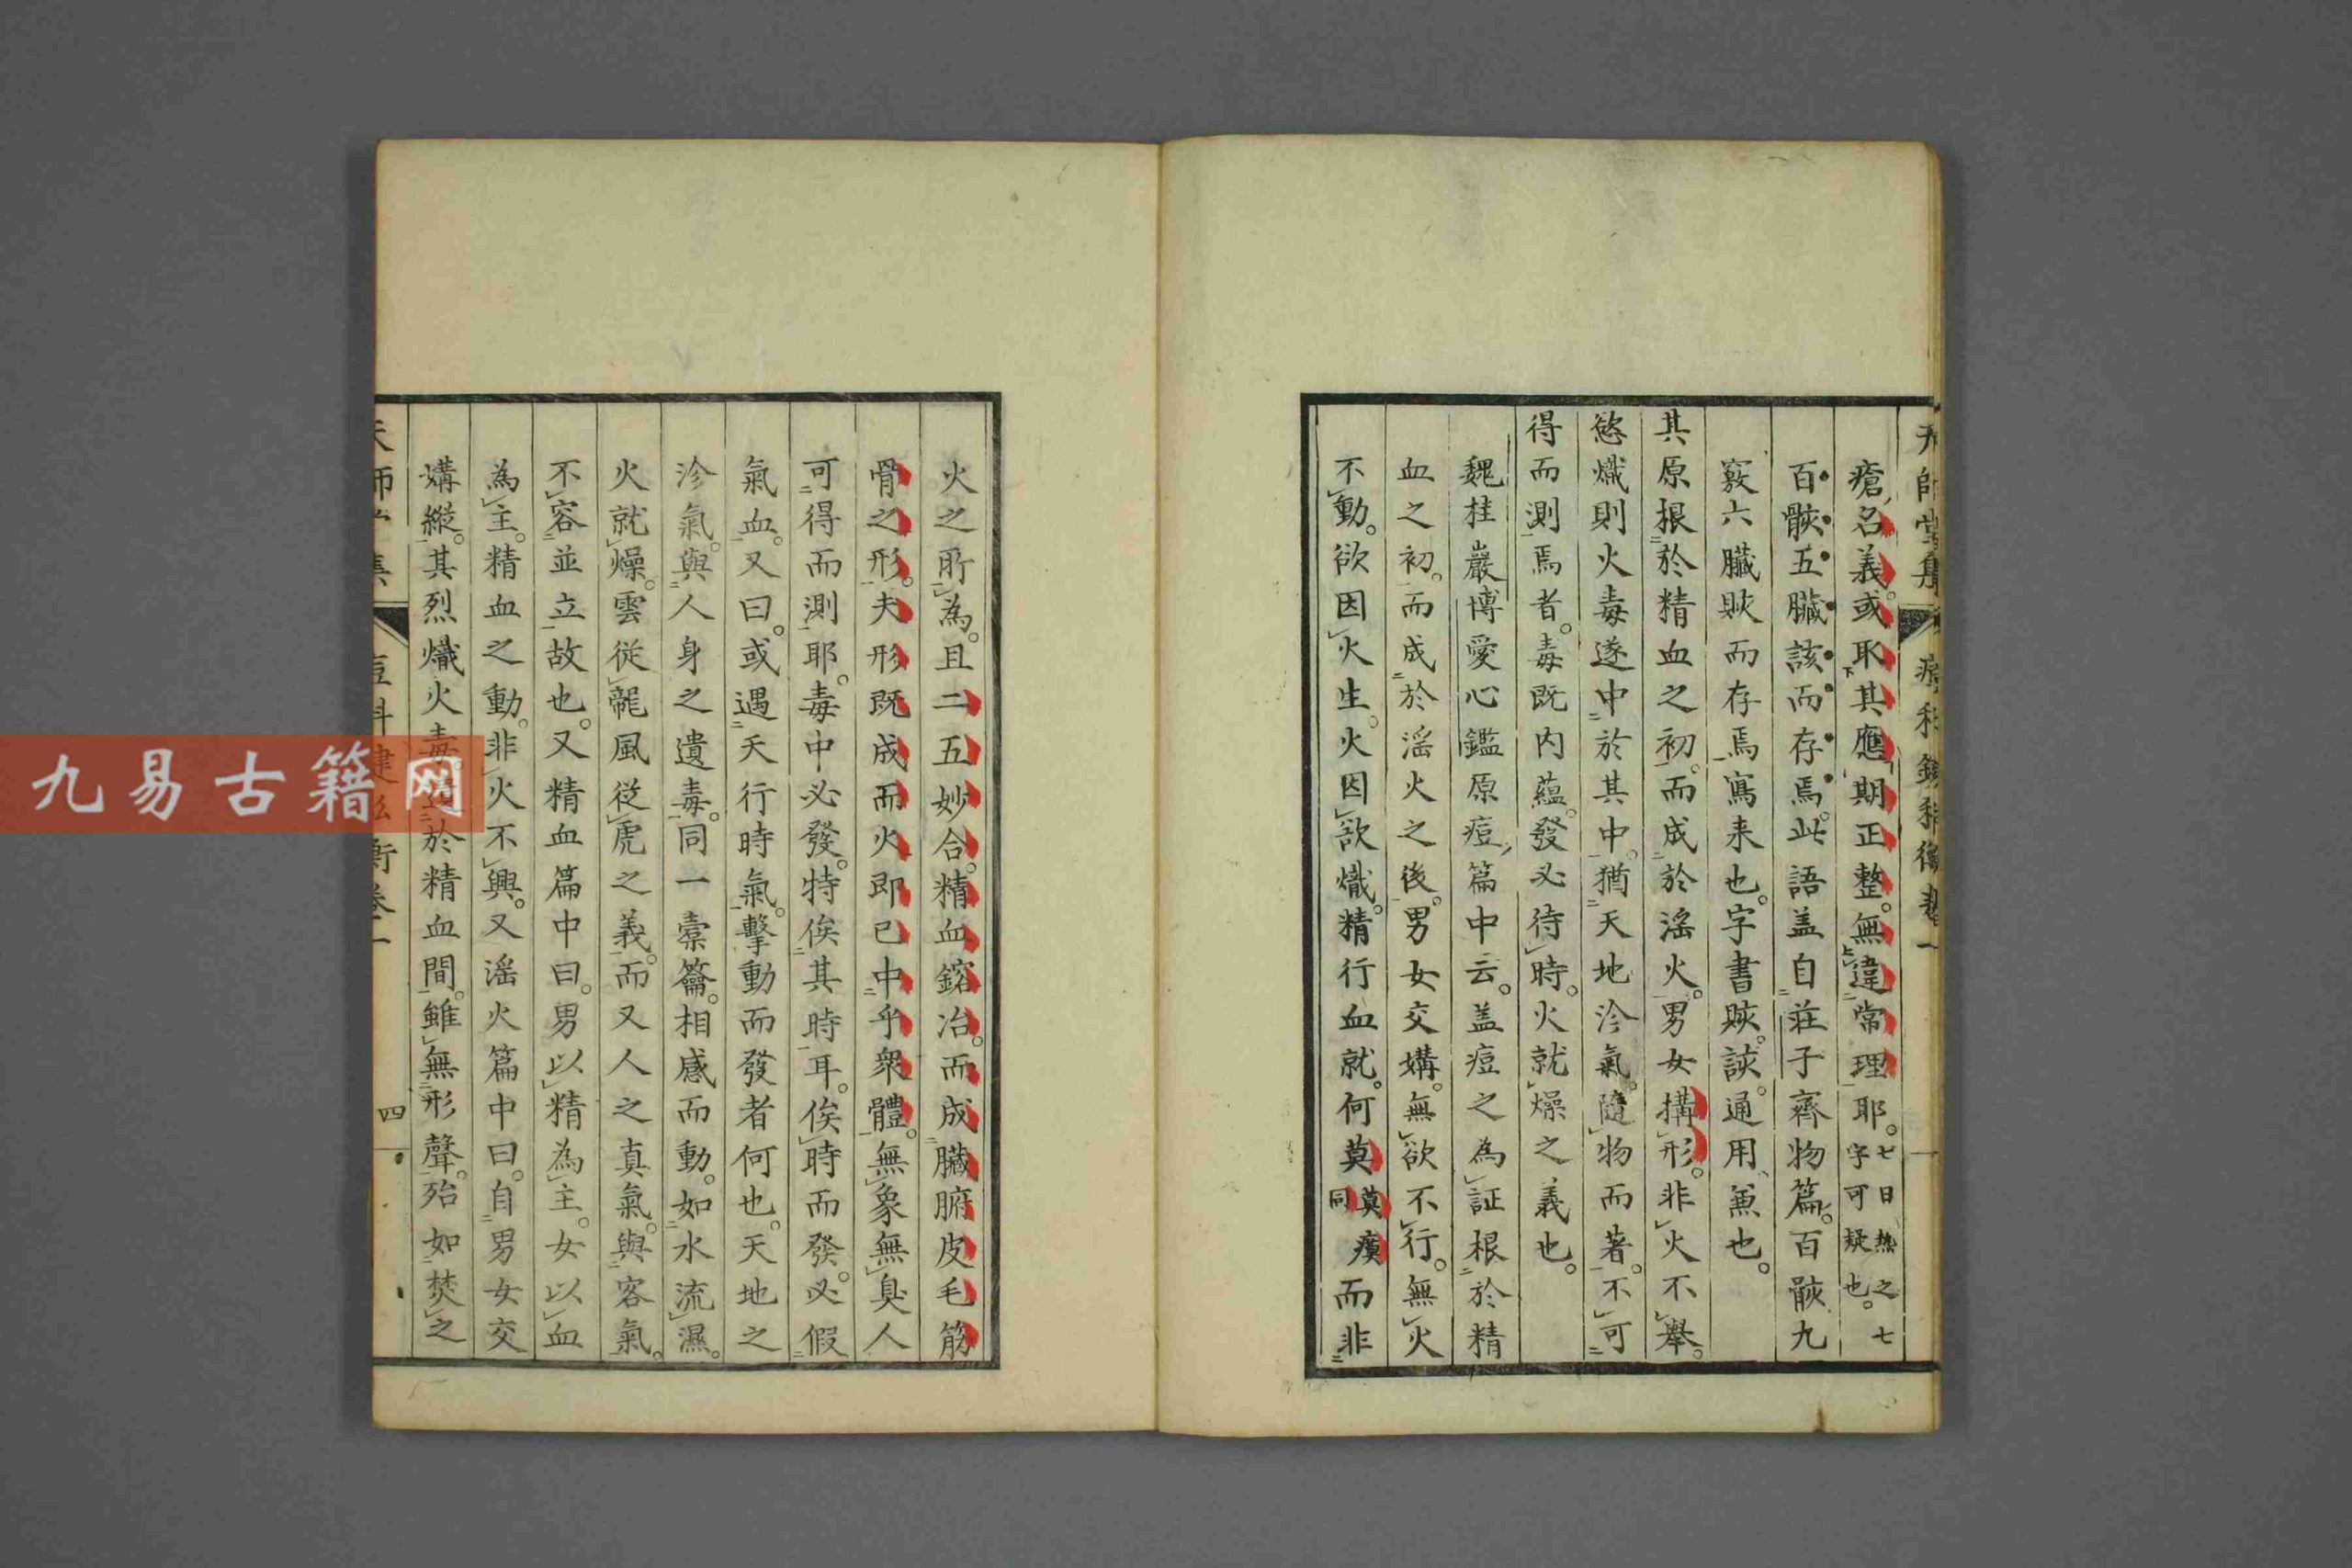 瘡名義或取其應期正整無違常理耶七日熱之七字可疑也
百骸五臟該而存焉此語蓋自莊子齊物篇百骸九
竅六臟賅而存焉寫来也字書賅該通用兼也
其原根於精血之初而成於滛火男女搆形非火不舉
慾熾則火毒遂中於其中猶天地沴氣隨物而著不可
得而測焉者毒既内蘊發必待時火就燥之義也
魏桂巖博愛心鑑原痘篇中云盖痘之為証根於精
血之初而成於滛火之後男女交媾無欲不行無火
不動欲因火生火因欲熾精行血就何莫莫瘼同而非
火之所為且二五妙合精血鎔冶而成臟腑皮毛筋
骨之形夫形既成而火即已中乎衆體無象無臭人
可得而測耶毒中必發特俟其時耳俟時而發必假
氣血又曰或遇天行時氣擊動而發者何也天地之
沴氣與人身之遺毒同一橐籥相感而動如水流濕
火就燥雲従龍風従虎之義而又人之真氣與客氣
不容並立故也又精血篇中曰男以精為主女以血
為主精血之動非火不興又滛火篇中曰自男女交
媾縱其烈熾火毒於精血間雖無形聲殆如焚之
四
九易古籍网